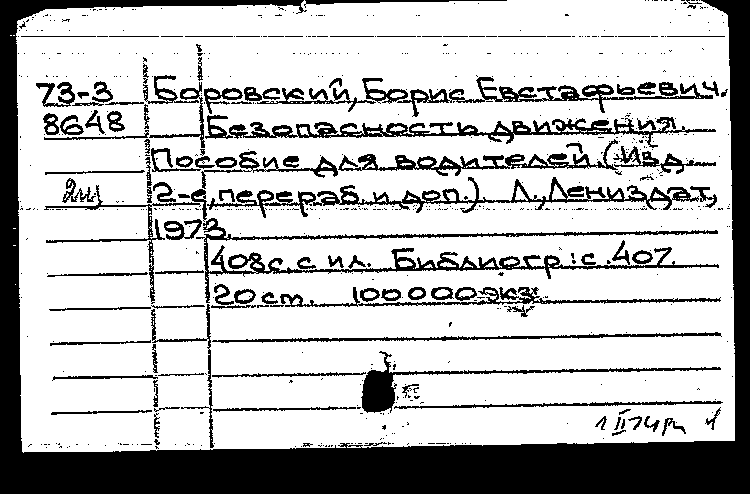 73-3 Боровский, Борис Евстафьевич.
8648 Безопасность движения.
Пособие для водителей. (Изд.
2-е, перераб. и доп.). Л., Лениздат,
1973.
408 с. с ил. Библиогр: с. 407.
20 см. 100 000 экз.